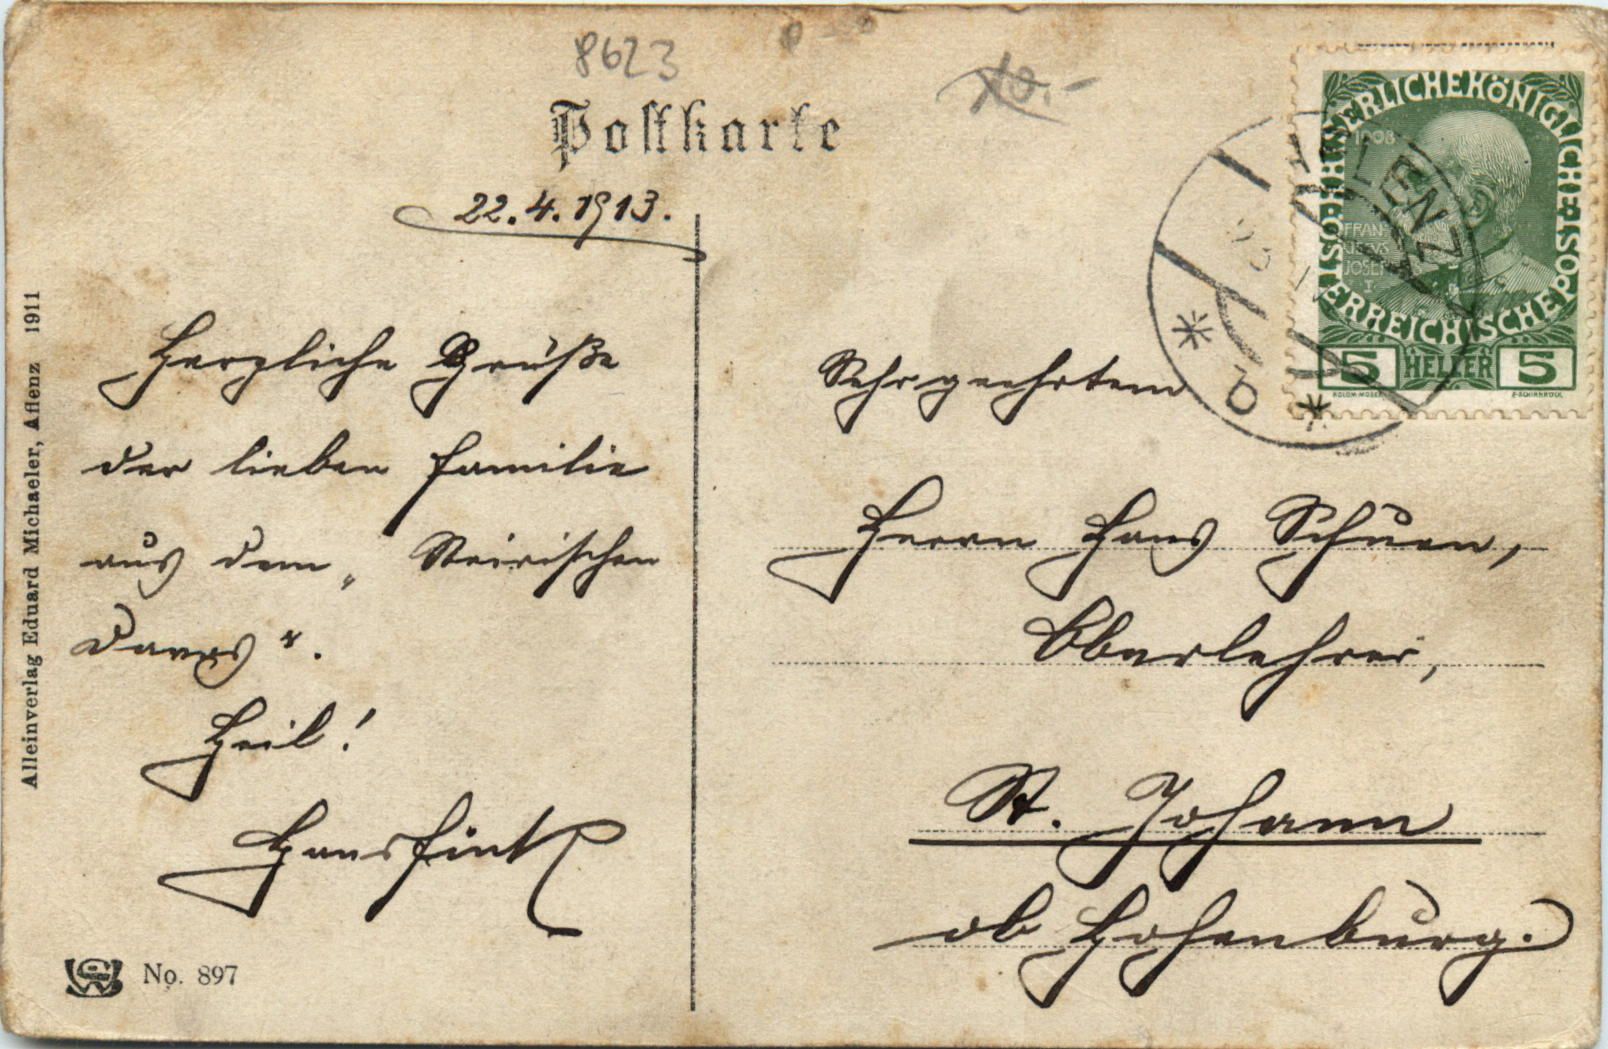 8623
Postkarte
22.4.1913.
Herzliche Grüße
der lieben Familie
aus dem „Steirischen
Davos".
Heil!
Hans Fink
No. 897
Alleinverlag Eduard Michaeler, Aflenz 1911
Sehr geehrtem
Herrn Hans Schuen,
Oberlehrer,
St. Johann
ob Hohenburg.
KAISERLICHE KÖNIGLICHE
POST
ÖSTERREICHISCHE
1908
FRAN-
CISCVS
JOSEF
I
5 HELLER 5
KOLOM. MOSER
F. SCHIRNBÖCK
AFLENZ
b